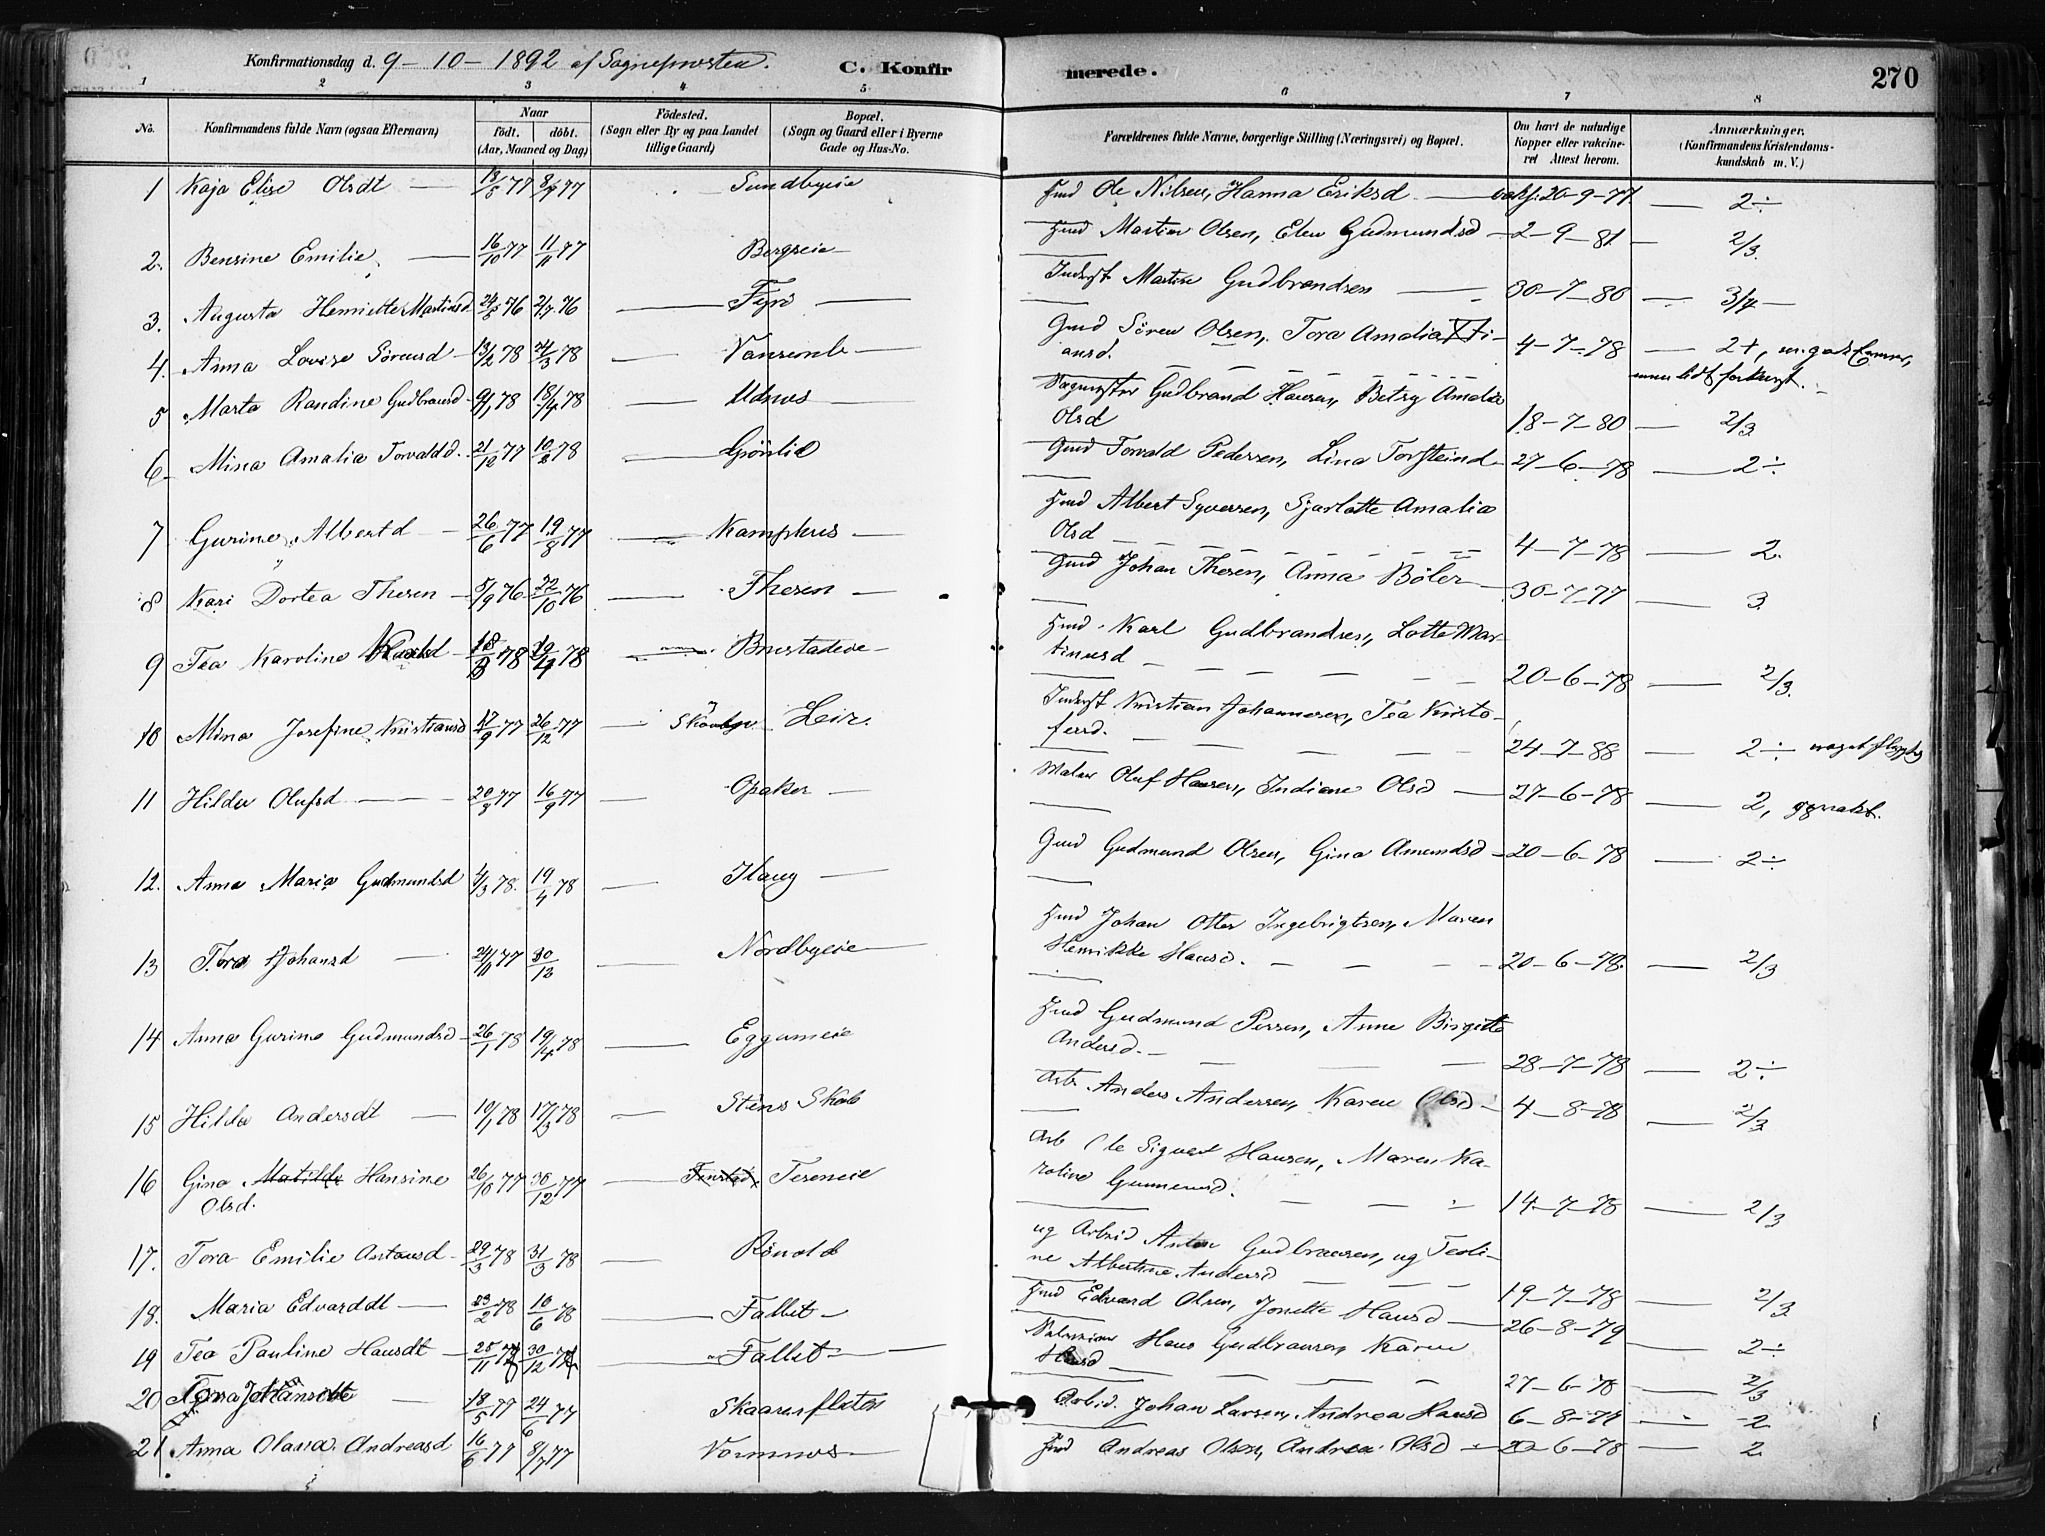 Konfirmationsdag d. 9 - 10 - 1892 af Sogneprosten. C. Konfirmerede. 270
1 2 3 4 5 6 7 8
No. Konfirmandens fulde Navn (ogsaa Efternavn) Naar födt. döbt. (Aar, Maaned og Dag) Födested. (Sogn eller By og paa Landet tillige Gaard) Bopæl. (Sogn og Gaard eller i Byerne Gade og Hus-No. Forældrenes fulde Navne, borgerlige Stilling (Næringsvei) og Bopæl. Om havt de naturlige Kopper eller vakcineret Attest herom. Anmærkninger. (Konfirmandens Kristendomskundskab m. V.)
1 Kaja Elise Olsdt — 18/5 77 8/7 77 Sundbyeie Hmd Ole Nilsen, Hanna Eriksd — 20-9-77 — 2÷
2. Bensine Emilie — 16/10 77 11/11 77 Bergseie — Hmd Martin Olsen, Elen Gudmundsd — 2-9-81 — 2/3.
3. Augusta Henriette Martinsd 24/5 76 2/7 76 — Fyri — Inderst Martin Gudbrandsen — 30-7-80 — 3/4 —
4. Anna Lovise Sörensd — 13/2 78 24/3 78 — — Gmd Sören Olsen, Tora Amalia
ansd. 4-7-78 — 2+,
5 Marta Randine Gudbransd 9/1 78 18/4 78 — Udnes — Gudbrand Hansen, Betsy Amalia
Olsd 18-7-80 — 2/3
6 Mina Amalia Torvaldd. 21/12 77 10/2 78 — Grönlid Gmd Torvald Pedersen, Lina Torsteind — 27-6-78 — 2÷
7 Gurine Albertd — 26/6 77 19/8 77 — Kamphus — Hmd Albert Syversen, Sjarlotte Amalia
Olsd 4-7-78 — 2.
8 Kari Dortea Thesen — 5/9 76 22/10 76 — Thesen — Gmd Johan Thesen, Anna Böler — 30-7-77 — 3
9 Tea Karoline Karlsd — 18/3 78 19/4 78 — Brustadeie — Hmd. Karl Gudbrandsen, Lotte Mar-
tinusd 20-6-78 — 2/3.
10 Mina Josefine Kristiansd 17/9 77 26/12 77 — Leir. Inderst Kristian Johannesen, Tea Kristo-
fersd. 24-7-88 — 2÷ noget
11 Hilda Olufsd — 20/8 77 16/9 77 — Opaker — Maler Oluf Hansen, Indiane Olsd — 27-6-78 — 2,
12. Anna Maria Gudmundsd 4/3 78. 19/4 78 — Haug — Gmd Gudmund Olsen, Gina Amundsd — 20-6-78 — 2÷
13 Tora Johansd — 24/11 77 30/12 — Nordbyeie — Hmd Johan Otter Ingebrigtsen, Maren
Henrikke Hansd. 20-6-78. — 2/3
14 Anna Gurine Gudmundsd — 26/1 78 19/4 78 — Eggumeie Hmd Gudmund Persen, Anne Birgitte
Andersd. — 28-7-78 — 2÷
15 Hilda Andersdt — 10/1 78 17/3 78 — Stens Skole Arb. Anders Andersen, Karen Olsd — 4-8-78 — 2/3
16 Gina Matilde Hansine 26/10 77 30/12 77 — Teseneie Arb Ole Sigvart Hansen, Maren Ka-
Olsd. roline Gunnerusd. 14-7-78 — 2/3
17. Tora Emilie Antonsd — 29/3 78 31/3 78 — Rönold ug Arbeid Anton Gudbransen, ug Teoli-
ne Albertine Andersd 19-7-78 — 2/3
18. Maria Edvarddt — 23/2 78 10/6 78 — Fallet — Hmd Edvard Olsen, Jonette Hansd — 26-8-79 — 2÷
19 Tea Pauline Hansdt — 25/11 30/12 — Fallet — Hans Gudbransen, Karen
Hansd 27-6-78 — 2/3
20 — 18/5 77 24/6 77 Skaaresfloten Arbid. Johan Larsen, Andrea Hansd 6-8-77 — 2
21 Anna Olava Andreasd 16/6 77 8/7 77 Vormnes — Hmd Andreas Olsen, Andrea Olsd — 20-6-78 — 2